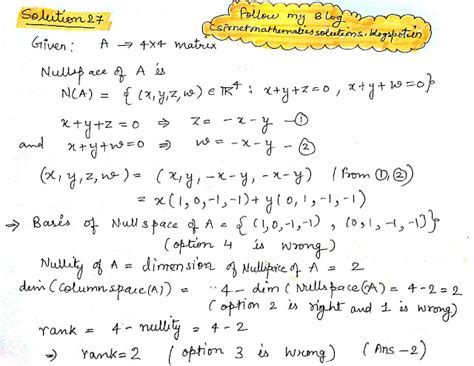 Solution 27
Follow my Blog
csirnetmathematicssolutions.blogspot.in
Given: A → 4×4 matrix
Nullspace of A is
N(A) = { (x,y,z,w) ∈ ℝ⁴ : x+y+z=0 , x+y+w=0}
x+y+z=0 ⇒ z= -x-y —①
and x+y+w=0 ⇒ w= -x-y —②
(x,y,z,w) = (x,y, -x-y, -x-y) (from ①,②)
= x(1,0,-1,-1)+y(0,1,-1,-1)
⇒ Basis of Nullspace of A = { (1,0,-1,-1) , (0,1,-1,-1)}
(option 4 is wrong)
Nullity of A = dimension of Nullspace of A = 2
dim(Column space(A)) = 4- dim(Nullspace(A) = 4-2=2
(option 2 is right and 1 is wrong)
rank = 4-nullity = 4-2
⇒ rank=2 (option 3 is wrong) (Ans-2)